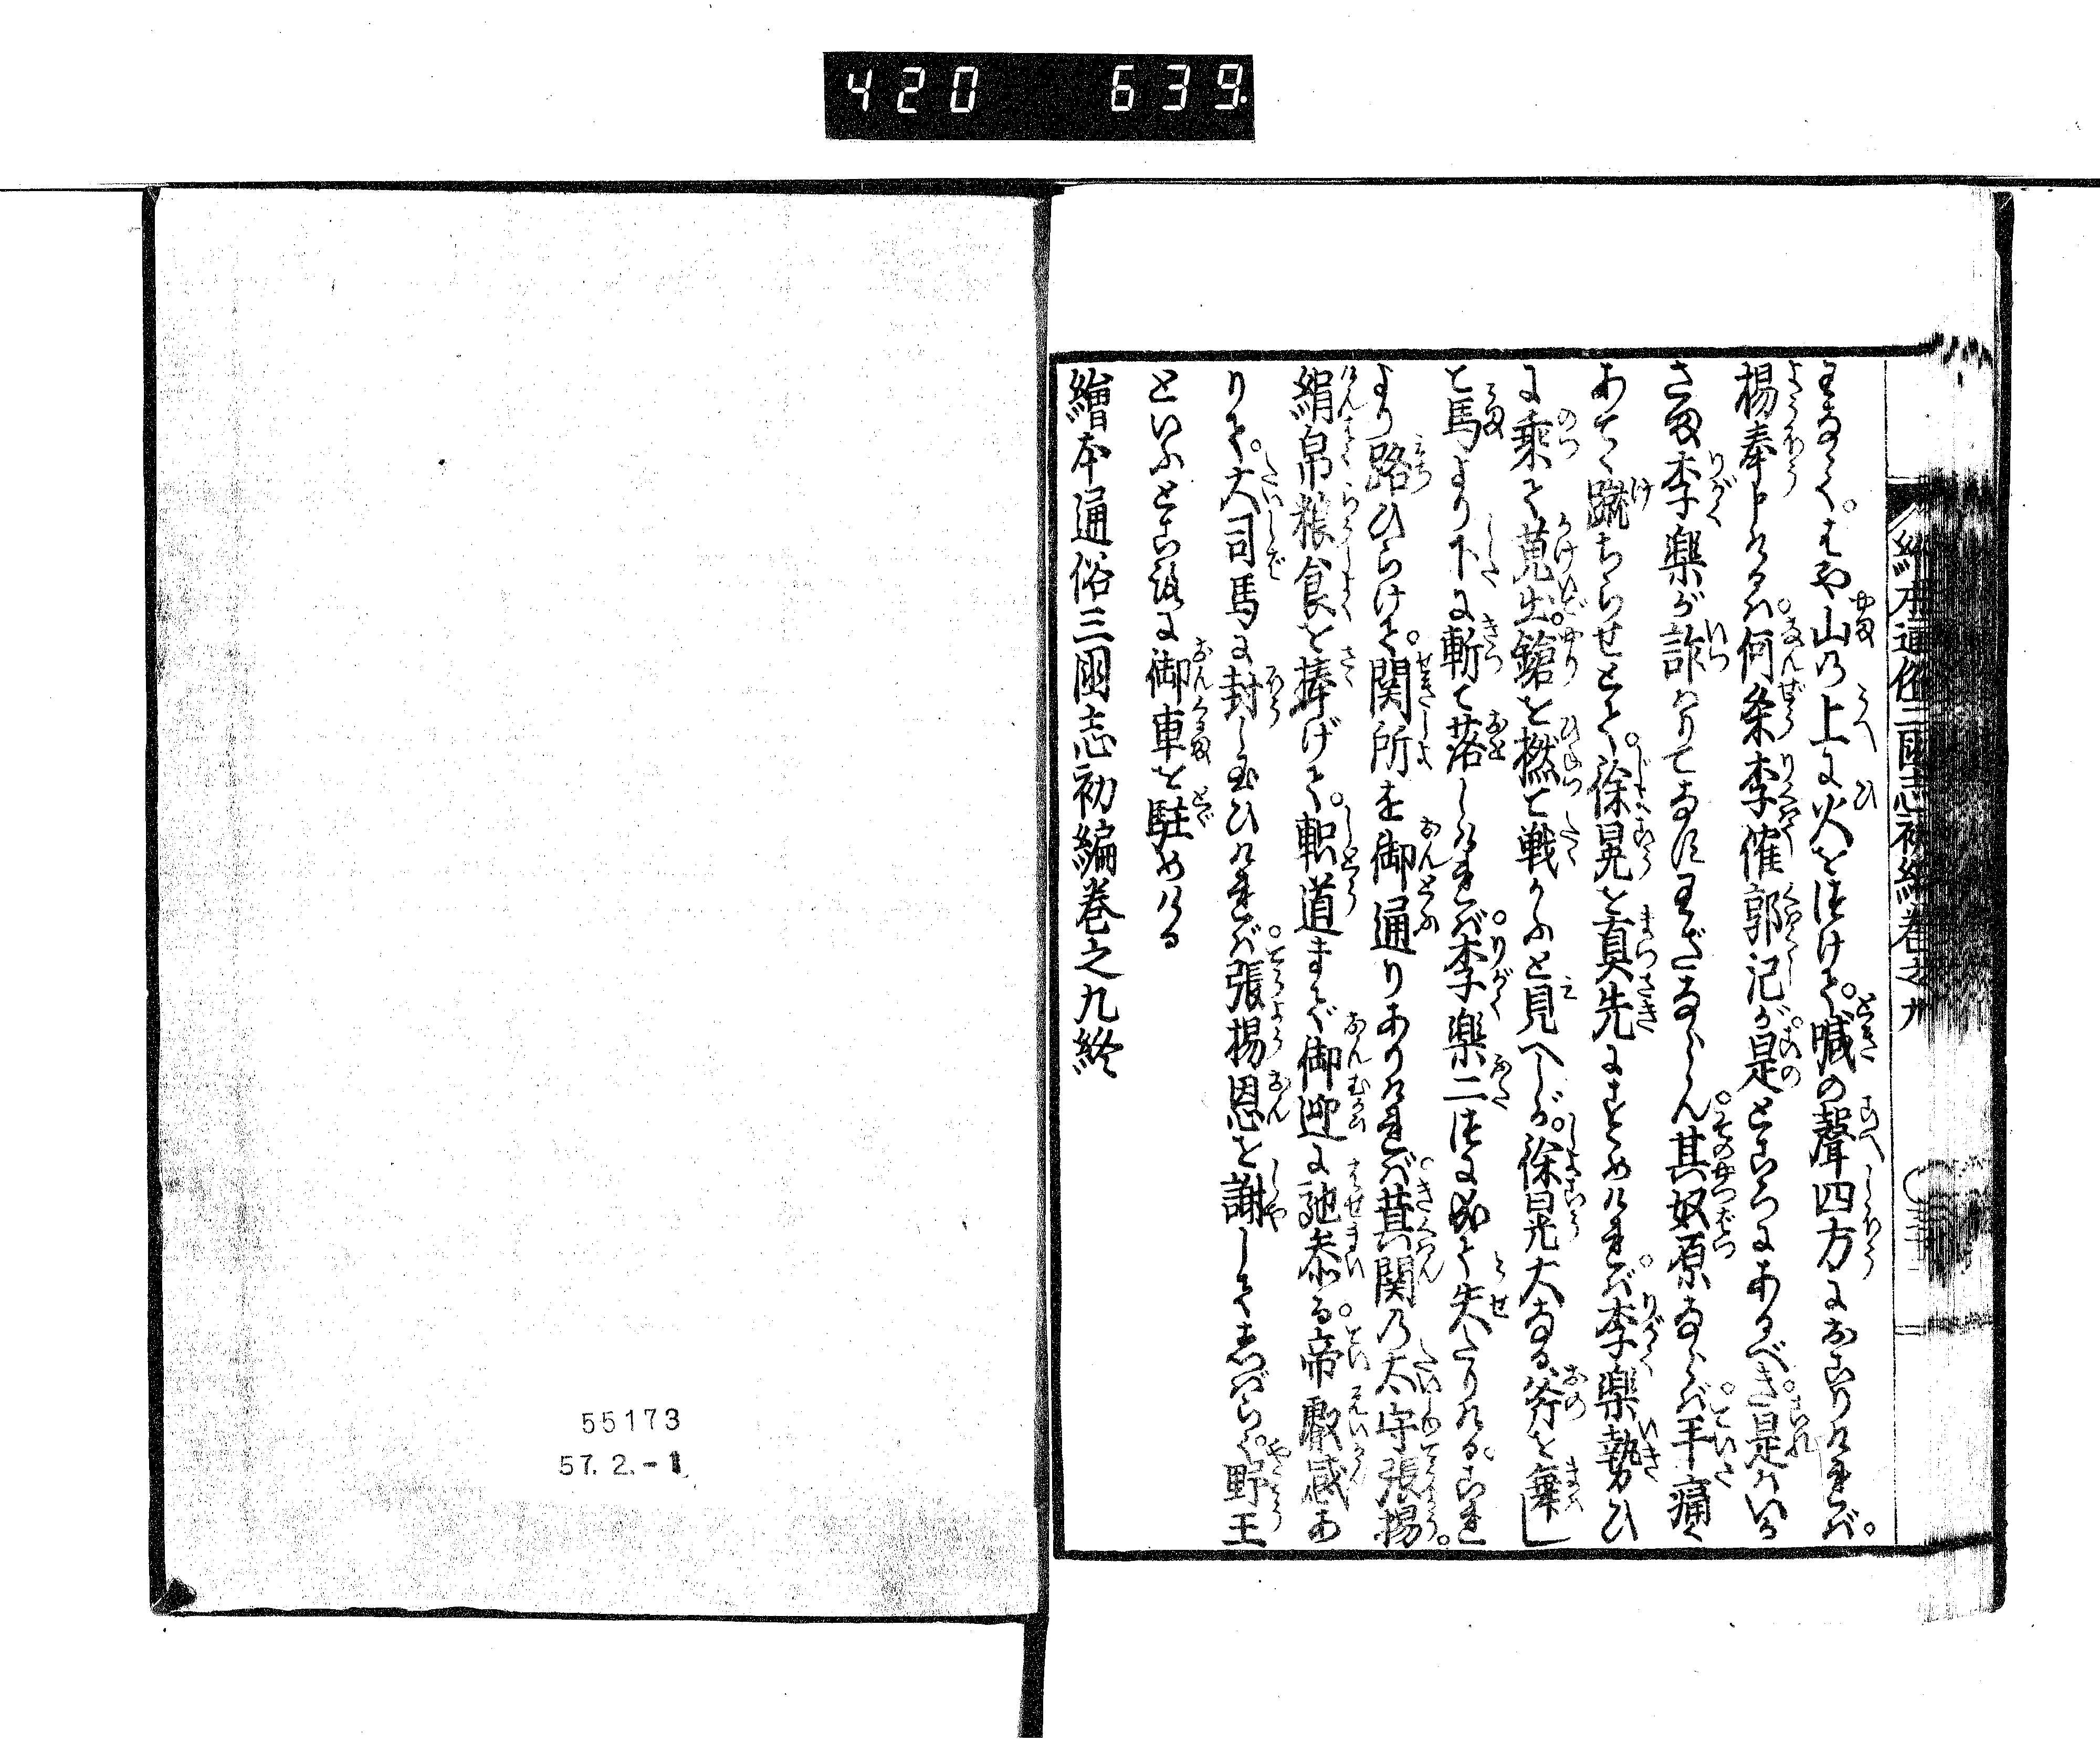 420 639
繪本通俗三國志初編巻之九
王なく。はや山の上に火をつけて。喊の聲四方におこりければ。
楊奉申けるは。何条李傕郭汜が。是ところにあるべき。是はいか
さま李樂が詐りてなすわざならん。其奴原ならば。手痛く
あてゝ蹴ちらせとて。徐晃を真先にすゝめければ。李樂勢ひ
に乗て荒出。鎗を撚て戦かふと見へしが。徐晃大なる斧を舞し
て馬より下に斬て落しければ。李樂二つに成て失たりける。これ
より路ひらけて。関所を御通りありければ。其関の太守張揚。
絹帛粮食を捧げて。軹道まで御迎に馳参る。帝叡感あ
りて。大司馬に封し玉ひければ。張揚恩を謝してしばらく。野王
といふところに御車を駐めける
繪本通俗三國志初編巻之九終
55173
57.2.-1